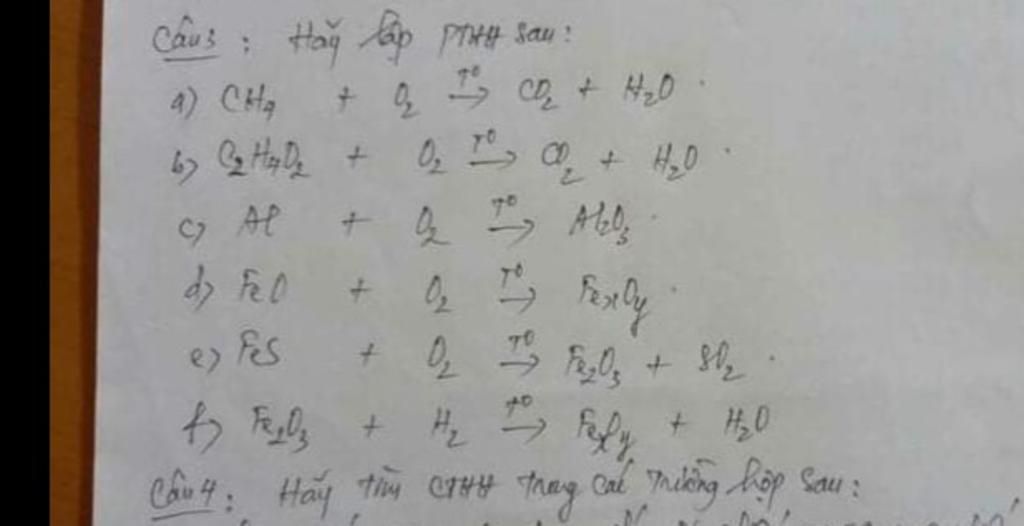 Câu 3 : Hãy lập PTHH sau :
a) CH4 + O2 T° → CO2 + H2O .
b) C2H4O2 + O2 T° → CO2 + H2O .
c) Al + O2 T° → Al2O3 .
d) FeO + O2 T° → FexOy .
e) FeS + O2 T° → Fe2O3 + SO2 .
f) Fe2O3 + H2 T° → FexOy + H2O
Câu 4 : Hãy tìm CTHH trong các trường hợp sau :